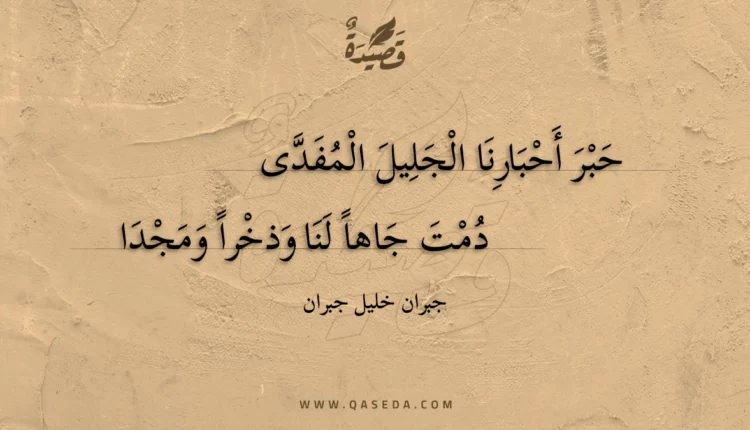 قَصِيدَةٌ
حَبْرَ أَحْبَارِنَا الْجَلِيلَ الْمُفَدَّى
دُمْتَ جَاهاً لَنَا وَذخْراً وَمَجْدَا
جبران خليل جبران
WWW.QASEDA.COM